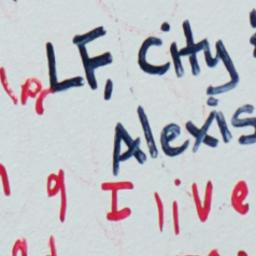 LF, City
Alexis
I live